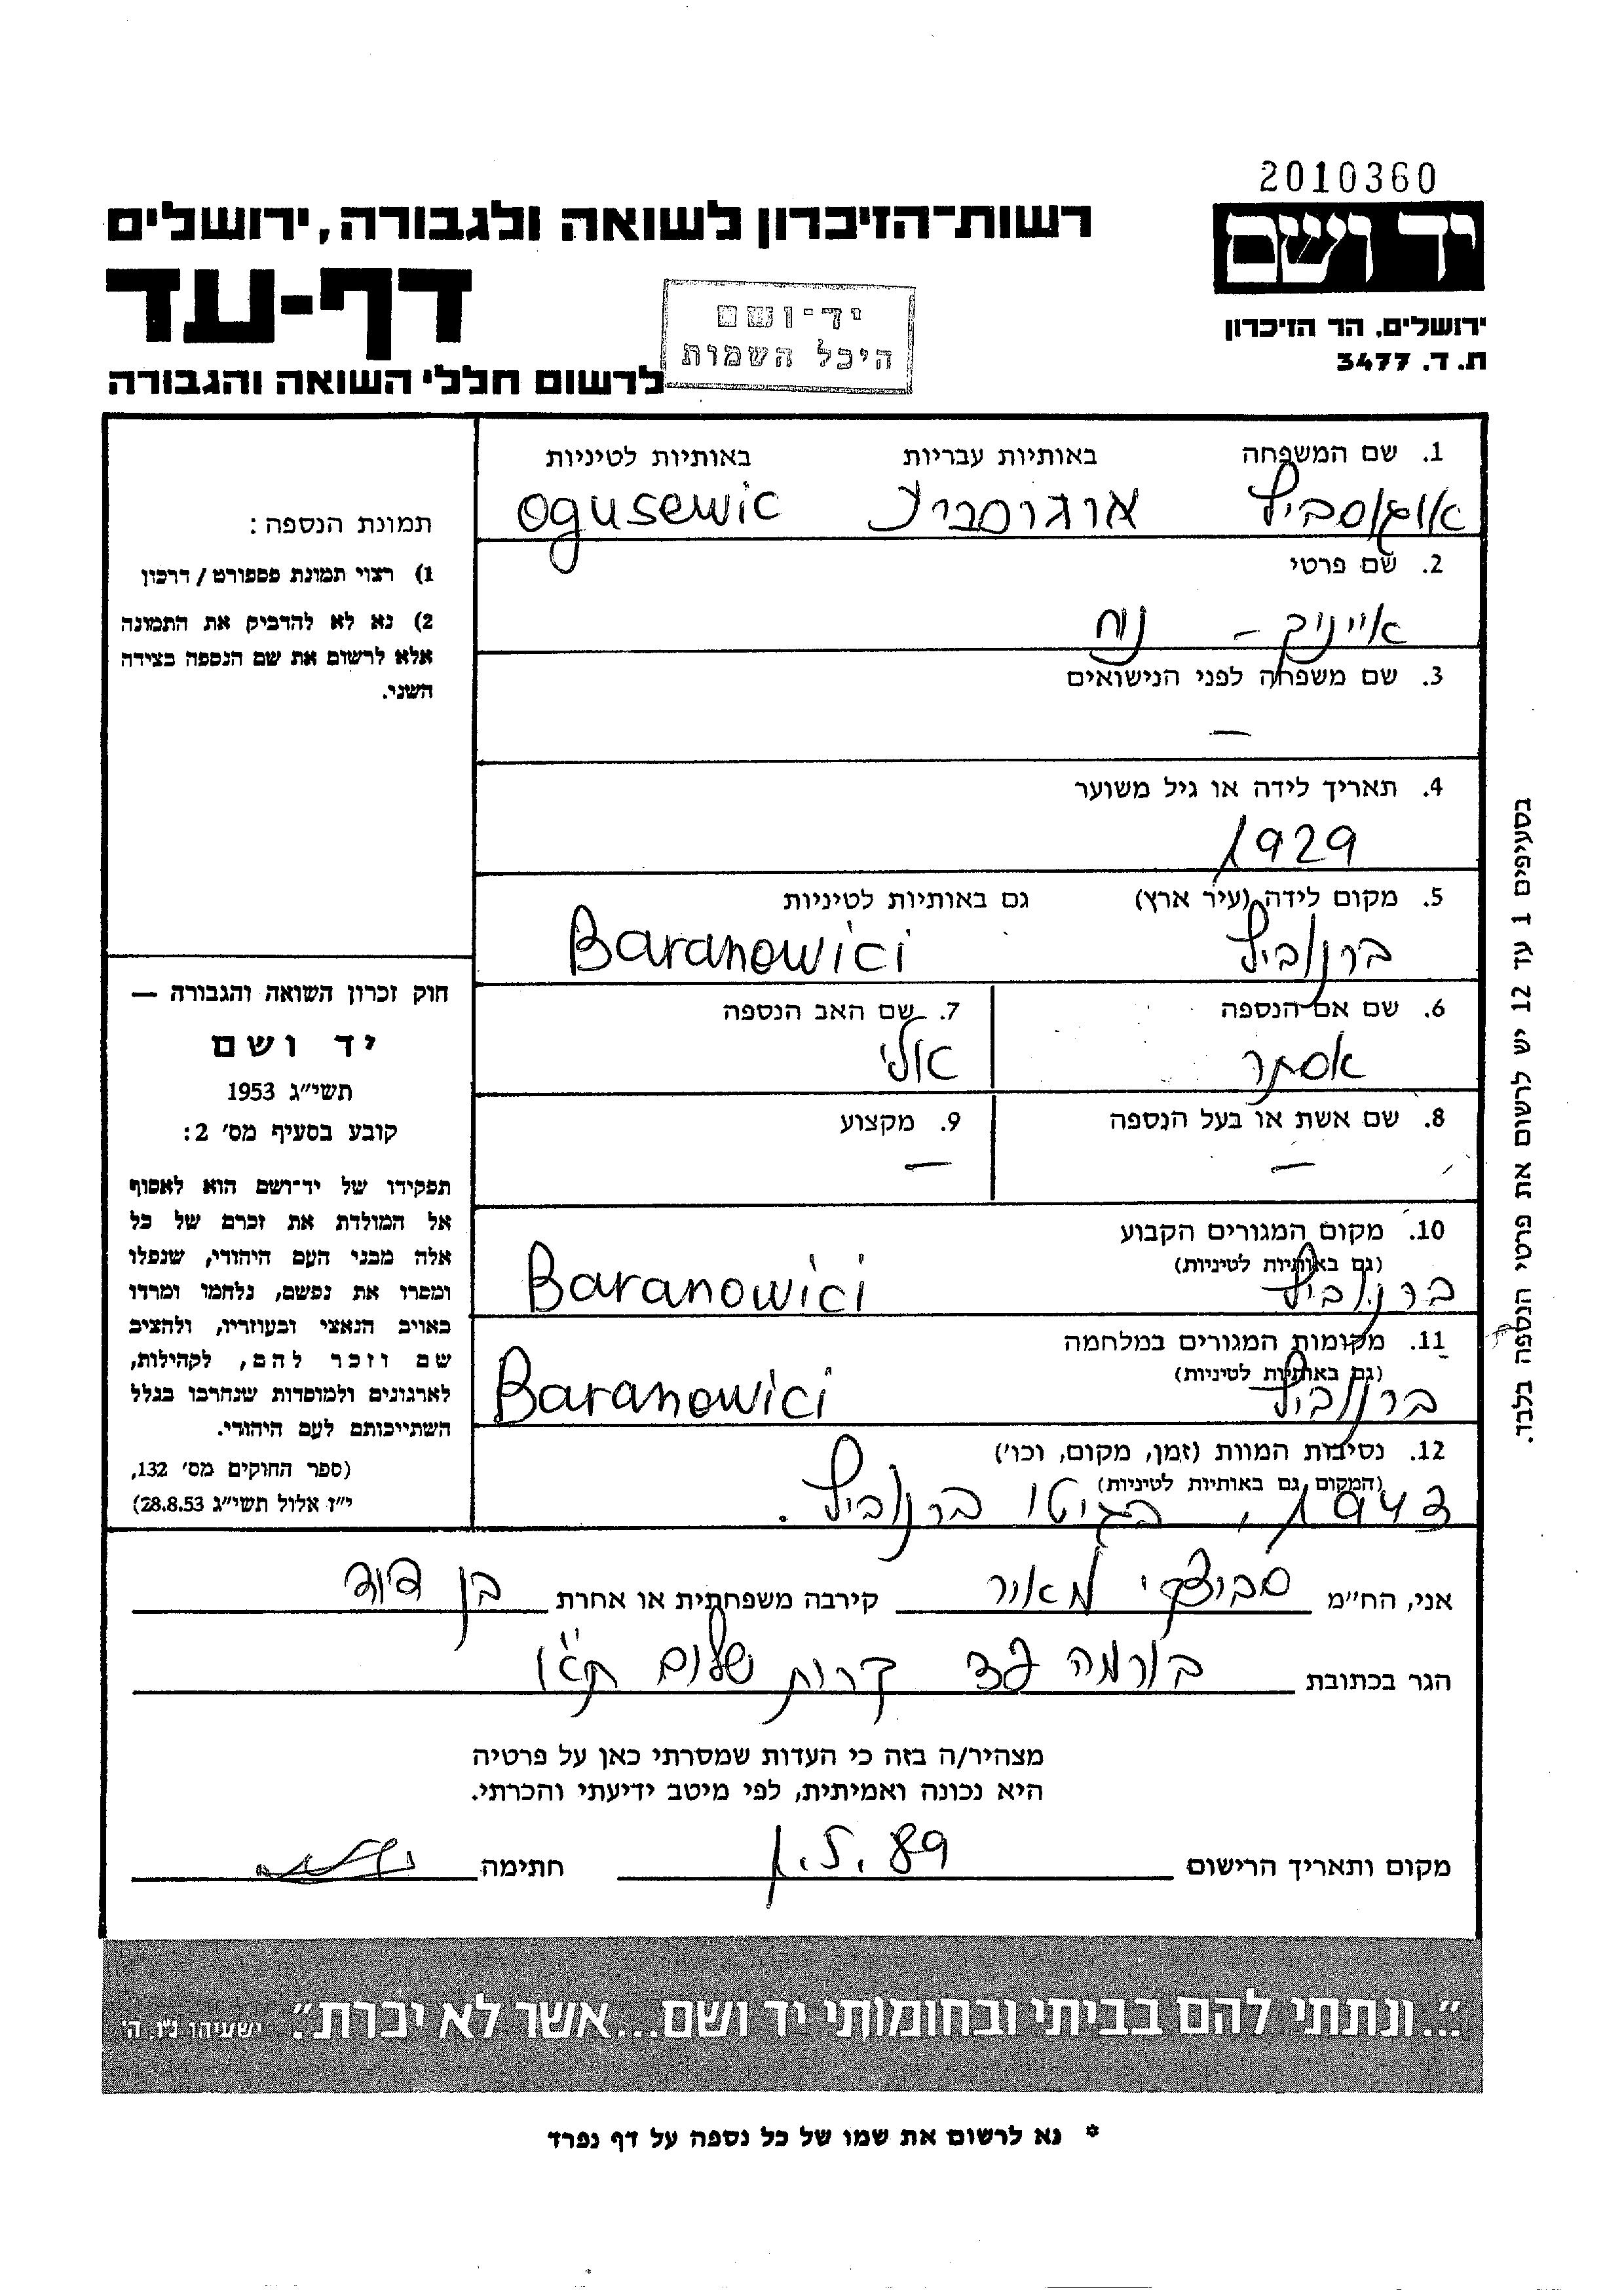 2010360
יד ושם
ירושלים, הר הזיכרון
ת. ד. 3477
רשות־הזיכרון לשואה ולגבורה, ירושלים
דף-עד
לרשום חללי השואה והגבורה
יד-ושם
היכל השמות
1. שם המשפחה באותיות עבריות באותיות לטיניות
אוגוסביץ אוגוסביץ ogusewic
2. שם פרטי
אייניק - נוח
3. שם משפחה לפני הנישואים
—
4. תאריך לידה או גיל משוער
1929
5. מקום לידה (עיר ארץ) גם באותיות לטיניות
ברנוביץ Baranowici
6. שם אם הנספה
אסתר
7. שם האב הנספה
אלי
8. שם אשת או בעל הנספה
—
9. מקצוע
—
10. מקום המגורים הקבוע
(גם באותיות לטיניות)
ברנוביץ Baranowici
11. מקומות המגורים במלחמה
(גם באותיות לטיניות)
ברנוביץ Baranowici
12. נסיבות המוות (זמן, מקום, וכו')
(המקום גם באותיות לטיניות)
1943, בגיטו ברנוביץ.
תמונת הנספה:
1) רצוי תמונת פספורט/דרכון
2) נא לא להדביק את התמונה
אלא לרשום את שם הנספה בצידה
השני.
חוק זכרון השואה והגבורה —
יד ושם
תשי״ג 1953
קובע בסעיף מס׳ 2:
תפקידו של יד־ושם הוא לאסוף
אל המולדת את זכרם של כל
אלה מבני העם היהודי, שנפלו
ומסרו את נפשם, נלחמו ומרדו
באויב הנאצי ובעוזריו, ולהציב
שם וזכר להם, לקהילות,
לארגונים ולמוסדות שנחרבו בגלל
השתייכותם לעם היהודי.
(ספר החוקים מס׳ 132,
י״ז אלול תשי״ג 28.8.53)
בסעיפים 1 עד 12 יש לרשום את פרטי הנספה בלבד.
אני, הח״מ מאיר קירבה משפחתית או אחרת בן דוד
הגר בכתובת שלום ת״א
מצהיר/ה בזה כי העדות שמסרתי כאן על פרטיה
היא נכונה ואמיתית, לפי מיטב ידיעתי והכרתי.
מקום ותאריך הרישום 1.5.89 חתימה
״...ונתתי להם בביתי ובחומותי יד ושם...אשר לא יכרת״. ישעיהו נ״ו, ה׳
* נא לרשום את שמו של כל נספה על דף נפרד